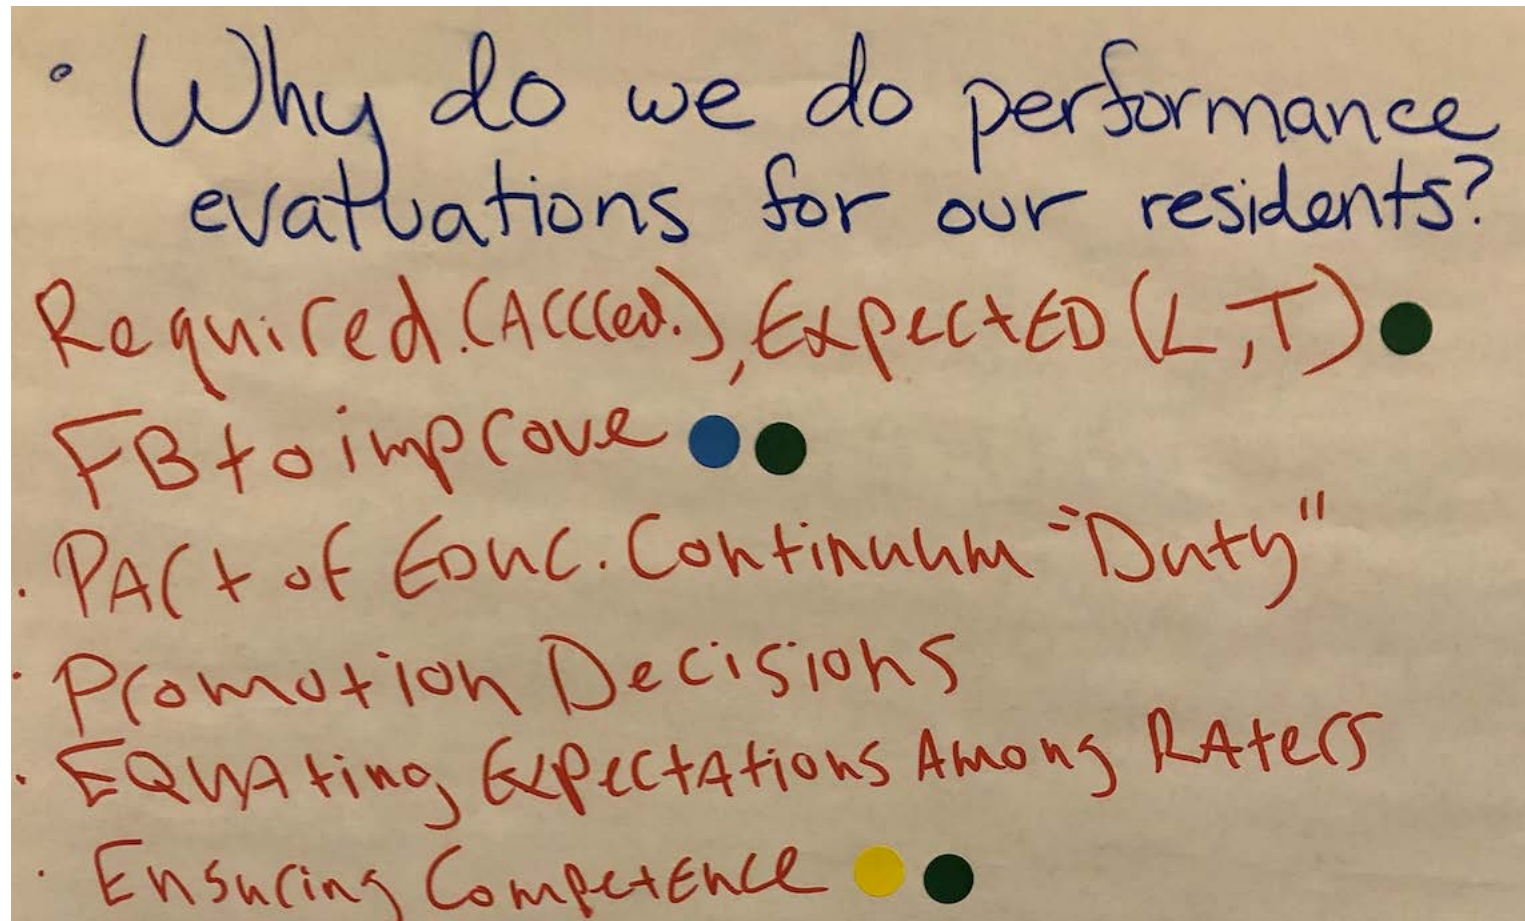 • Why do we do performance
evaluations for our residents?
Required.(Accred.), Expected (L,T)
FB to improve
. Part of Educ. Continuum "Duty"
. Promotion Decisions
. Equating Expectations Among Raters
. Ensuring Competence